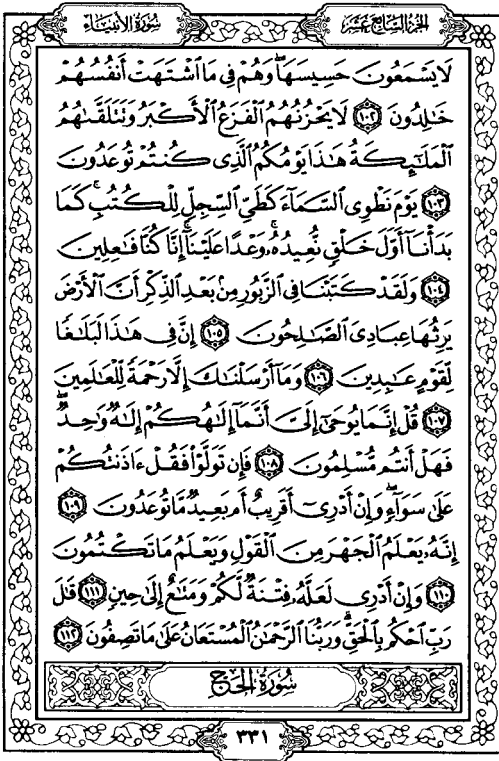 سُورَةُ الْأَنْبِيَاءِ
الجُزْءُ السَّابِعَ عَشَرَ
لَا يَسْمَعُونَ حَسِيسَهَا ۖ وَهُمْ فِي مَا اشْتَهَتْ أَنفُسُهُمْ
خَالِدُونَ ﴿١٠٢﴾ لَا يَحْزُنُهُمُ الْفَزَعُ الْأَكْبَرُ وَتَتَلَقَّاهُمُ
الْمَلَائِكَةُ هَٰذَا يَوْمُكُمُ الَّذِي كُنتُمْ تُوعَدُونَ
﴿١٠٣﴾ يَوْمَ نَطْوِي السَّمَاءَ كَطَيِّ السِّجِلِّ لِلْكُتُبِ ۚ كَمَا
بَدَأْنَا أَوَّلَ خَلْقٍ نُّعِيدُهُ ۚ وَعْدًا عَلَيْنَا ۚ إِنَّا كُنَّا فَاعِلِينَ
﴿١٠٤﴾ وَلَقَدْ كَتَبْنَا فِي الزَّبُورِ مِنْ بَعْدِ الذِّكْرِ أَنَّ الْأَرْضَ
يَرِثُهَا عِبَادِيَ الصَّالِحُونَ ﴿١٠٥﴾ إِنَّ فِي هَٰذَا لَبَلَاغًا
لِّقَوْمٍ عَابِدِينَ ﴿١٠٦﴾ وَمَا أَرْسَلْنَاكَ إِلَّا رَحْمَةً لِّلْعَالَمِينَ
﴿١٠٧﴾ قُلْ إِنَّمَا يُوحَىٰ إِلَيَّ أَنَّمَا إِلَٰهُكُمْ إِلَٰهٌ وَاحِدٌ ۖ
فَهَلْ أَنتُم مُّسْلِمُونَ ﴿١٠٨﴾ فَإِن تَوَلَّوْا فَقُلْ ءَاذَنتُكُمْ
عَلَىٰ سَوَاءٍ ۖ وَإِنْ أَدْرِي أَقَرِيبٌ أَم بَعِيدٌ مَّا تُوعَدُونَ ﴿١٠٩﴾
إِنَّهُ يَعْلَمُ الْجَهْرَ مِنَ الْقَوْلِ وَيَعْلَمُ مَا تَكْتُمُونَ
﴿١١٠﴾ وَإِنْ أَدْرِي لَعَلَّهُ فِتْنَةٌ لَّكُمْ وَمَتَاعٌ إِلَىٰ حِينٍ ﴿١١١﴾ قَالَ
رَبِّ احْكُم بِالْحَقِّ ۗ وَرَبُّنَا الرَّحْمَٰنُ الْمُسْتَعَانُ عَلَىٰ مَا تَصِفُونَ ﴿١١٢﴾
سُورَةُ الْحَجِّ
٣٣١